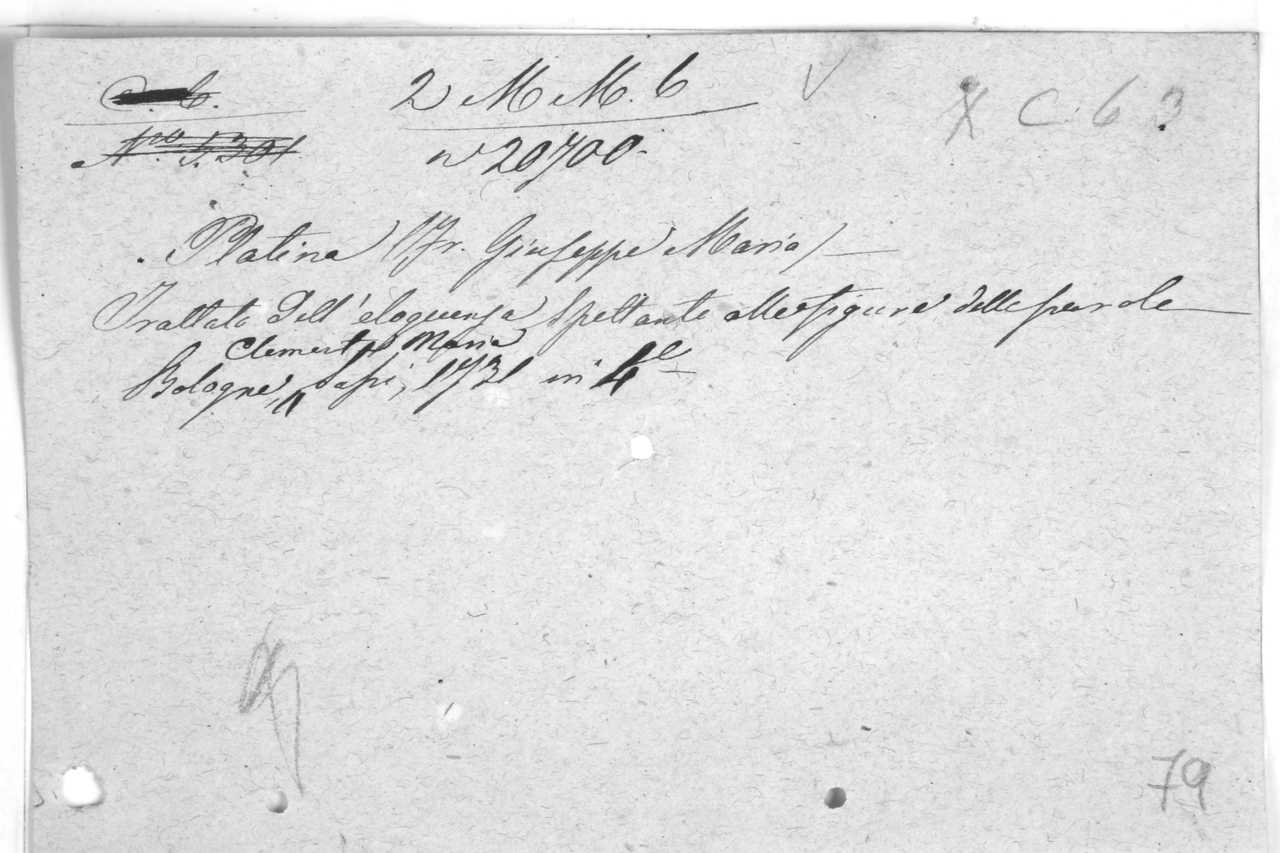 2 M M. 6
X C 6 3
No 5.301
n° 20700.
Platina (Fr. Giuseppe Maria)
Trattato dell' eloquenza spettante alle figure delle parole
Clement Maria
Bologne, Sassi, 1731 in 4º
79